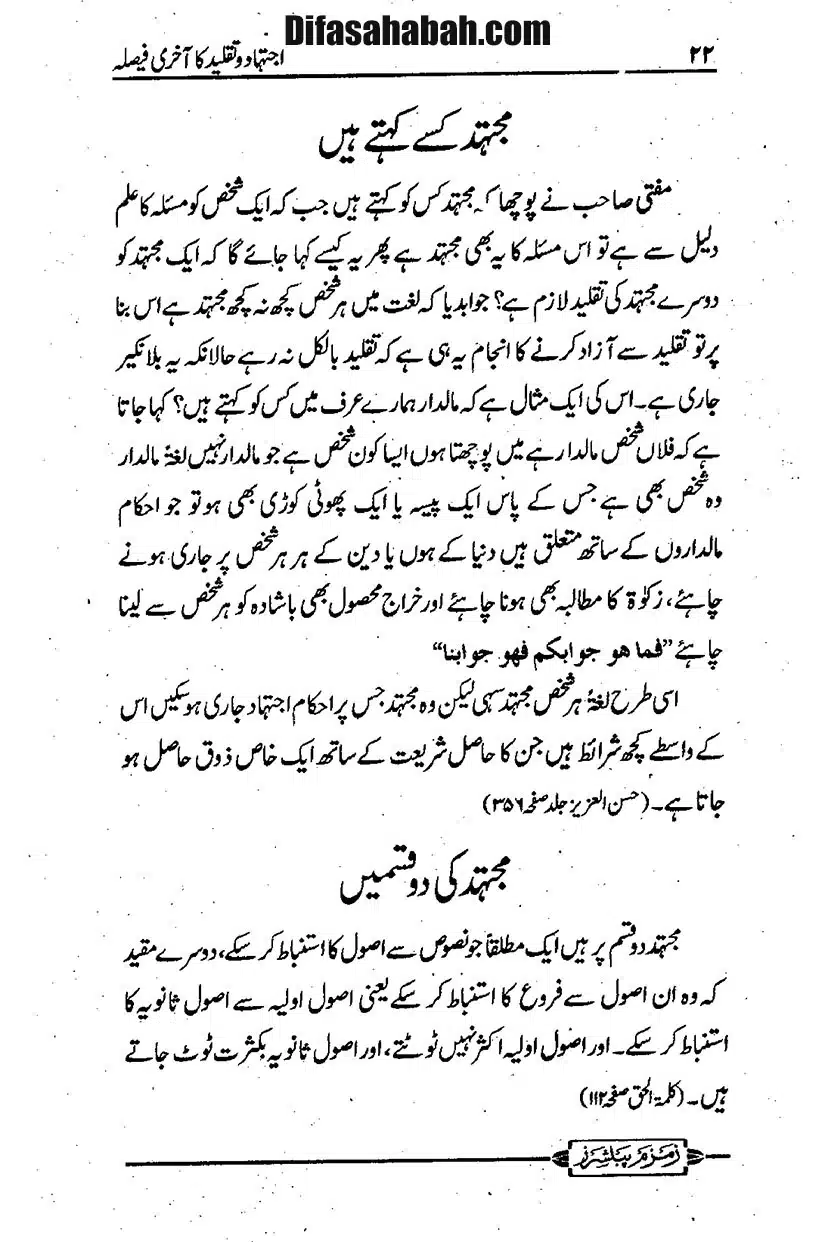 Difasahabah.com
۲۲
اجتہاد و تقلید کا آخری فیصلہ
مجتہد کسے کہتے ہیں
مفتی صاحب نے پوچھا کہ مجتہد کس کو کہتے ہیں جب کہ ایک شخص کو مسئلہ کا علم
دلیل سے ہے تو اس مسئلہ کا یہ بھی مجتہد ہے پھر یہ کیسے کہا جائے گا کہ ایک مجتہد کو
دوسرے مجتہد کی تقلید لازم ہے؟ جواب دیا کہ لغت میں ہر شخص کچھ نہ کچھ مجتہد ہے اس بنا
پر تو تقلید سے آزاد کرنے کا انجام یہ ہی ہے کہ تقلید بالکل نہ رہے حالانکہ یہ بلا نکیر
جاری ہے۔ اس کی ایک مثال ہے کہ مالدار ہمارے عرف میں کس کو کہتے ہیں؟ کہا جاتا
ہے کہ فلاں شخص مالدار ہے میں پوچھتا ہوں ایسا کون شخص ہے جو مالدار نہیں لغۃً مالدار
وہ شخص بھی ہے جس کے پاس ایک پیسہ یا ایک پھوٹی کوڑی بھی ہو تو جو احکام
مالداروں کے ساتھ متعلق ہیں دنیا کے ہوں یا دین کے ہر ہر شخص پر جاری ہونے
چاہئے، زکوٰۃ کا مطالبہ بھی ہونا چاہئے اور خراج محصول بھی باشادہ کو ہر شخص سے لینا
چاہئے ”فما هو جوابكم فهو جوابنا“
اسی طرح لغۃً ہر شخص مجتہد سہی لیکن وہ مجتہد جس پر احکام اجتہاد جاری ہو سکیں اس
کے واسطے کچھ شرائط ہیں جن کا حاصل شریعت کے ساتھ ایک خاص ذوق حاصل ہو
جاتا ہے۔ (حسن العزیز جلد صفحہ ۳۵۶)
مجتہد کی دو قسمیں
مجتہد دو قسم پر ہیں ایک مطلقاً جو نصوص سے اصول کا استنباط کر سکے، دوسرے مقید
کہ وہ ان اصول سے فروع کا استنباط کر سکے یعنی اصول اولیہ سے اصول ثانویہ کا
استنباط کر سکے۔ اور اصول اولیہ اکثر نہیں ٹوٹتے، اور اصول ثانویہ بکثرت ٹوٹ جاتے
ہیں۔ (کلمۃ الحق صفحہ ۱۱۲)
زمزم پبلشرز